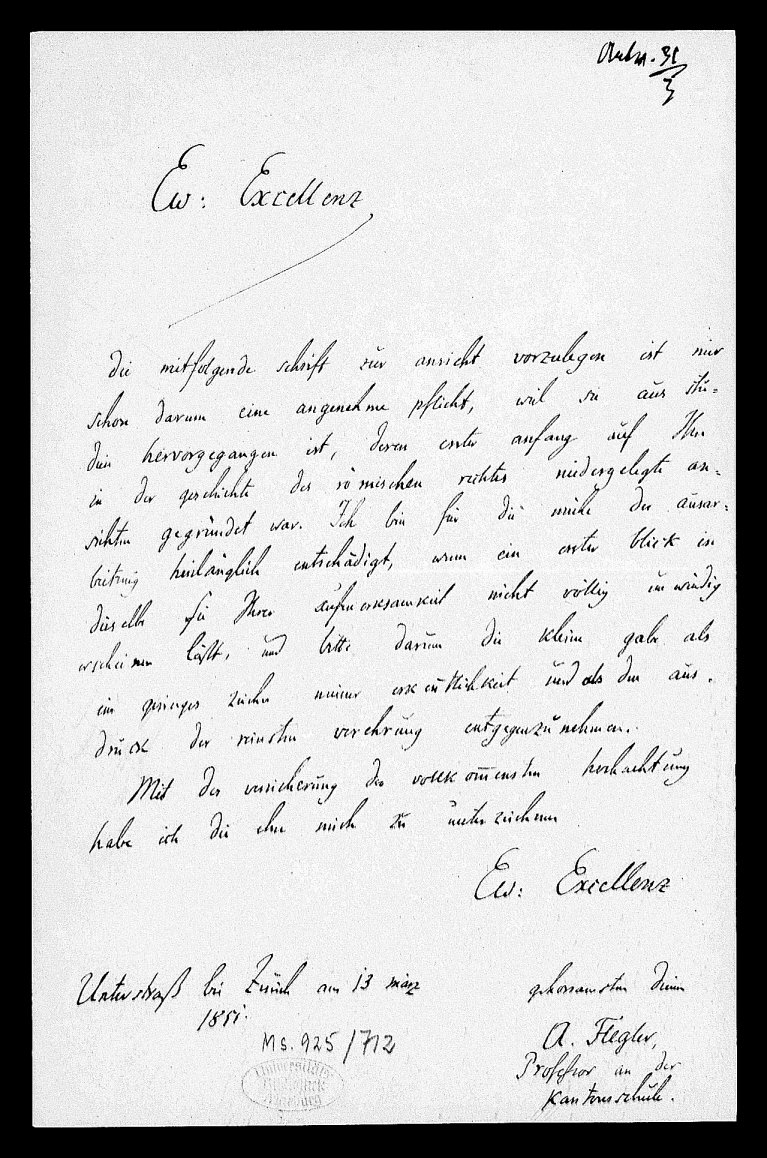 Antw. 31/3
Ew: Excellenz
die mitfolgende schrift zur ansicht vorzulegen ist mir
schon darum eine angenehme pflicht, weil sie aus stu=
dien hervorgegangen ist, deren erster anfang auf Ihre
in der geschichte des römischen rechtes niedergelegte an=
sichten gegründet war. Ich bin für die mühe der ausar=
beitung hinlänglich entschädigt, wenn ein erster blick in
dieselbe sie Ihrer aufmerksamkeit nicht völlig unwürdig
erscheinen läßt, und bitte darum die kleine gabe als
ein geringes zeichen meiner erkenntlichkeit und als den aus=
druck der reinsten verehrung entgegenzunehmen.
Mit der versicherung der vollkom̄ensten hochachtung
habe ich die ehre mich zu unterzeichnen
Ew: Excellenz
Unterstraß bei Zürich am 13 märz
1851.
gehorsamster diener
A. Flegler,
Professor an der
Kantonsschule.
Ms. 925/712
Universitäts
Bibliothek
Marburg